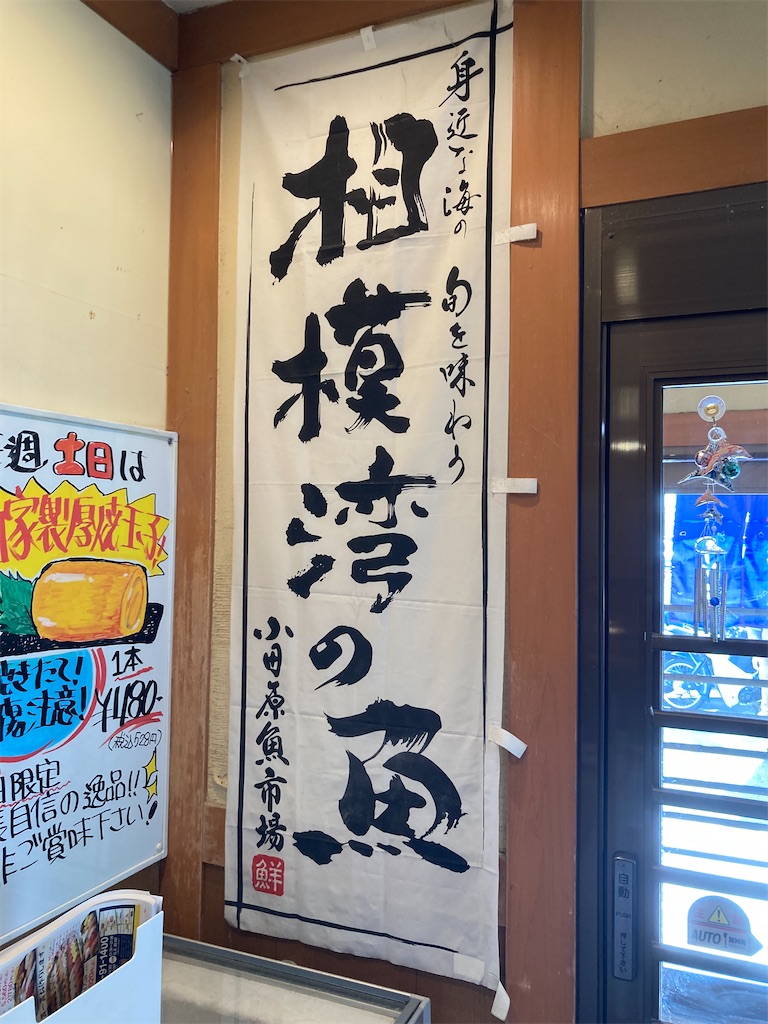 身近な海の 旬を味わう
相模湾の魚
小田原魚市場
鮮
週 土日は
家製厚焼玉子
焼きたて!
注意!
1本
¥480-
(税込528円)
限定
自信の逸品!!
ご賞味下さい!
91-1400
自動
PUSH
押して下さい
AUTO